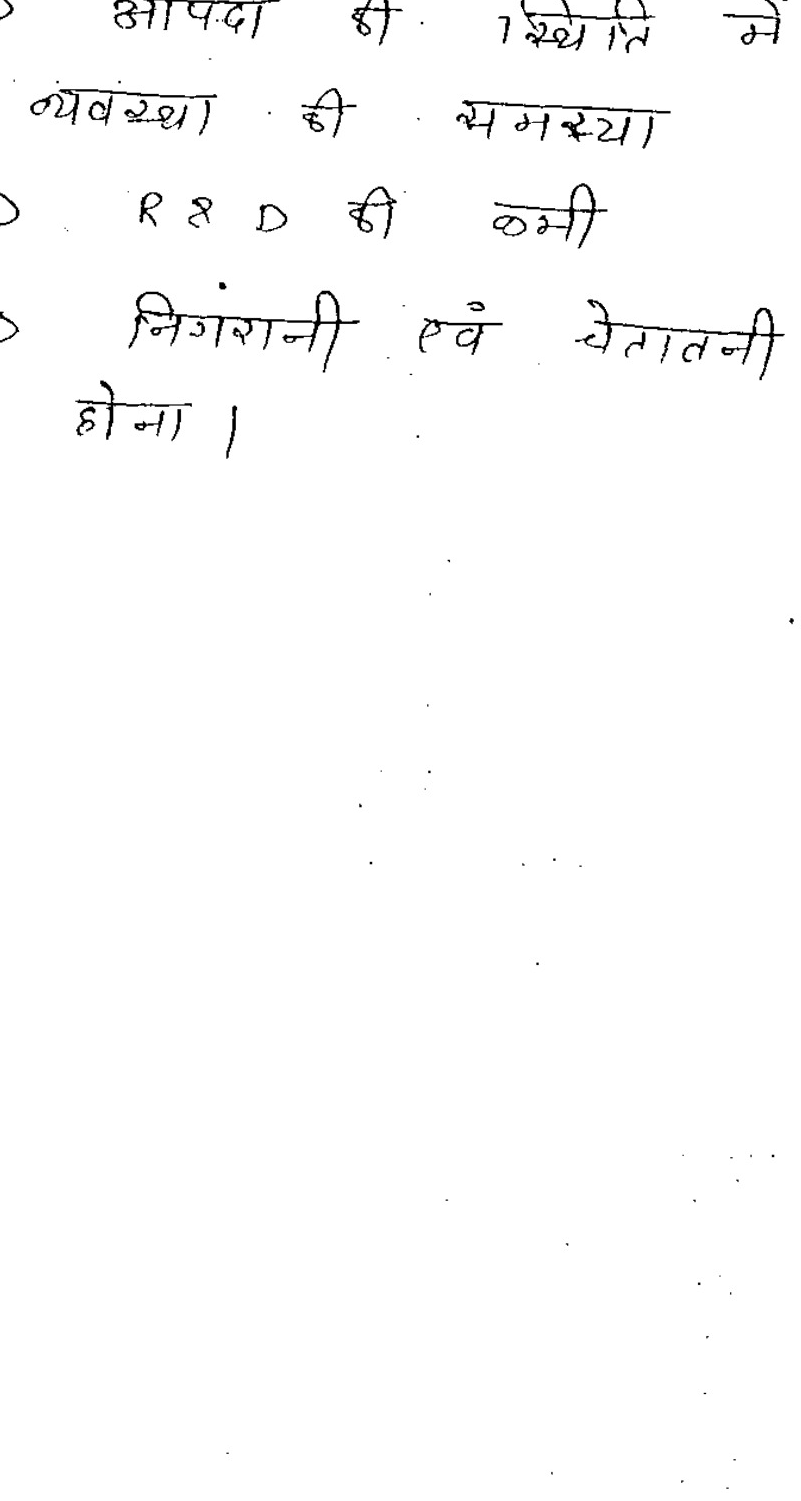 आपदा की स्थिति में
व्यवस्था की समस्या
R & D की कमी
निगरानी एवं चेतातनी
होना ।